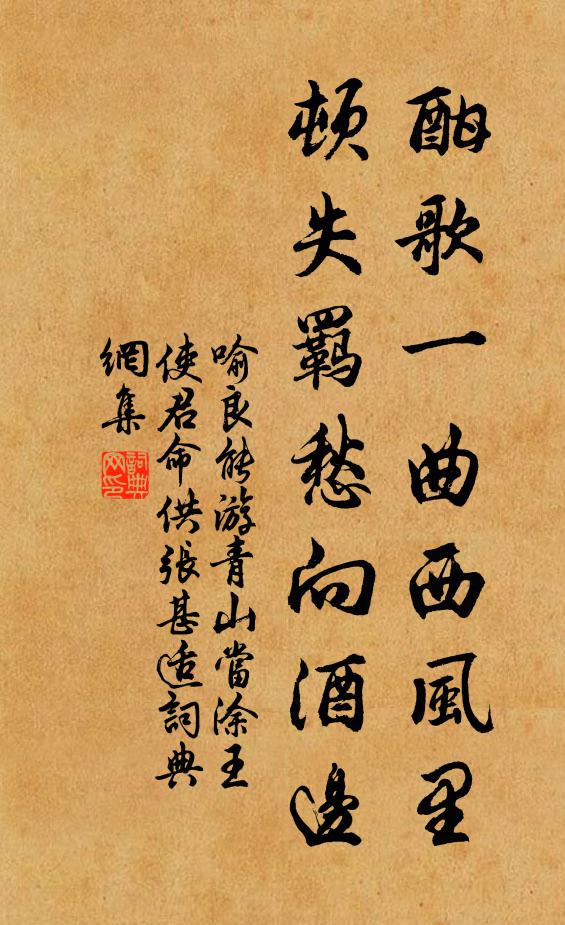 酣歌一曲西風里
頓失羈愁向酒邊
喻良能游青山當涂王
使君命供張甚适詞典
網集
詞典網印